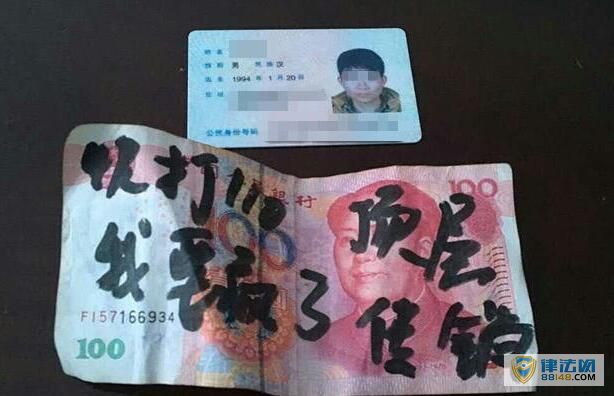 姓名
性别 男 民族 汉
出生 1994 年 1 月 20 日
住址
公民身份号码
银行
100
快打110 顶层
我要疯了 传销
FI57166934
100
律法网
88148.com